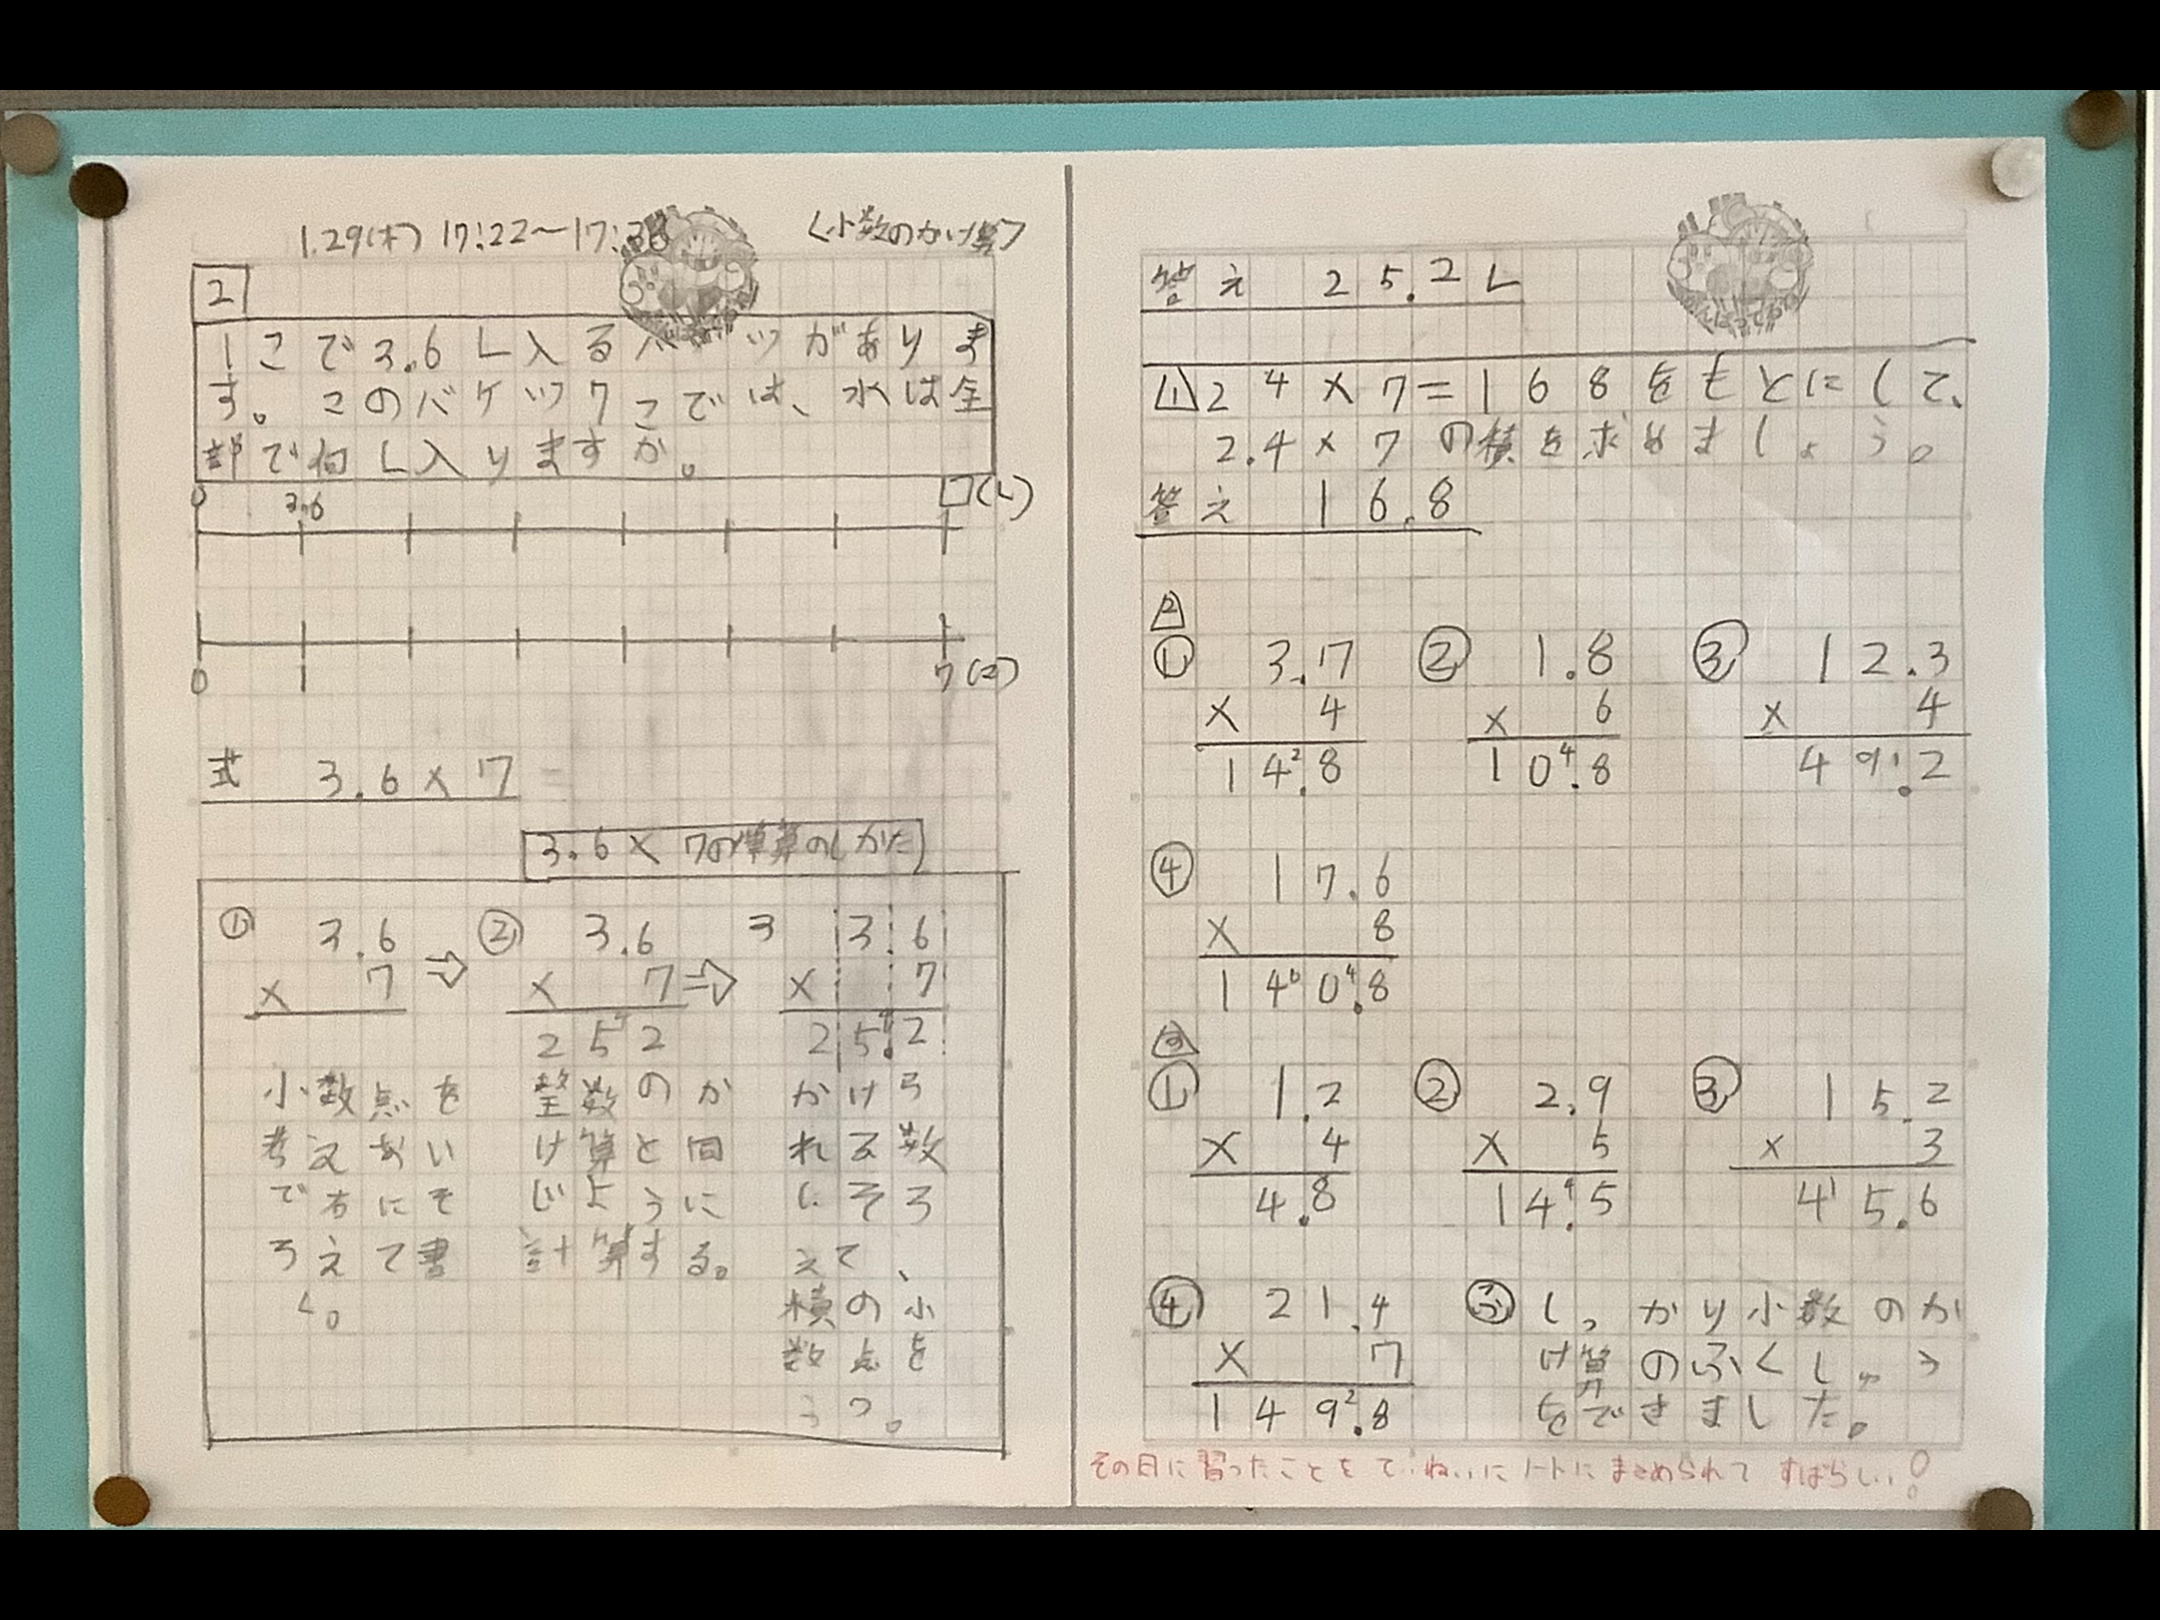 1.29(木) 17:22〜17:38 〈小数のかけ算〉
2
1こで3.6L入るバケツがありま
す。このバケツ7こでは、水は全
部で何L入りますか。
0 3.6 □(L)
0 1 7(こ)
式 3.6×7
3.6×7の筆算のしかた
① 3.6
× 7
小数点を
考えない
で右にそ
ろえて書
く。
⇨
② 3.6
× 7
25⁴2
整数のか
け算と同
じように
計算する。
⇨
3 3.6
× 7
25⁴.2
かけら
れる数
にそろ
えて、
積の小
数点を
うつ。
答え 25.2L
1 24×7=168をもとにして、
2.4×7の積を求めましょう。
答え 16.8
2
① 3.7
× 4
14².8
② 1.8
× 6
10⁴.8
③ 12.3
× 4
49¹.2
④ 17.6
× 8
14⁶0⁴.8
3
① 1.2
× 4
4.8
② 2.9
× 5
14⁴.5
③ 15.2
× 3
4¹5.6
④ 21.4
× 7
149².8
ふ しっかり小数のか
け算のふくしゅう
をできました。
その日に習ったことをていねいにノートにまとめられてすばらしい!